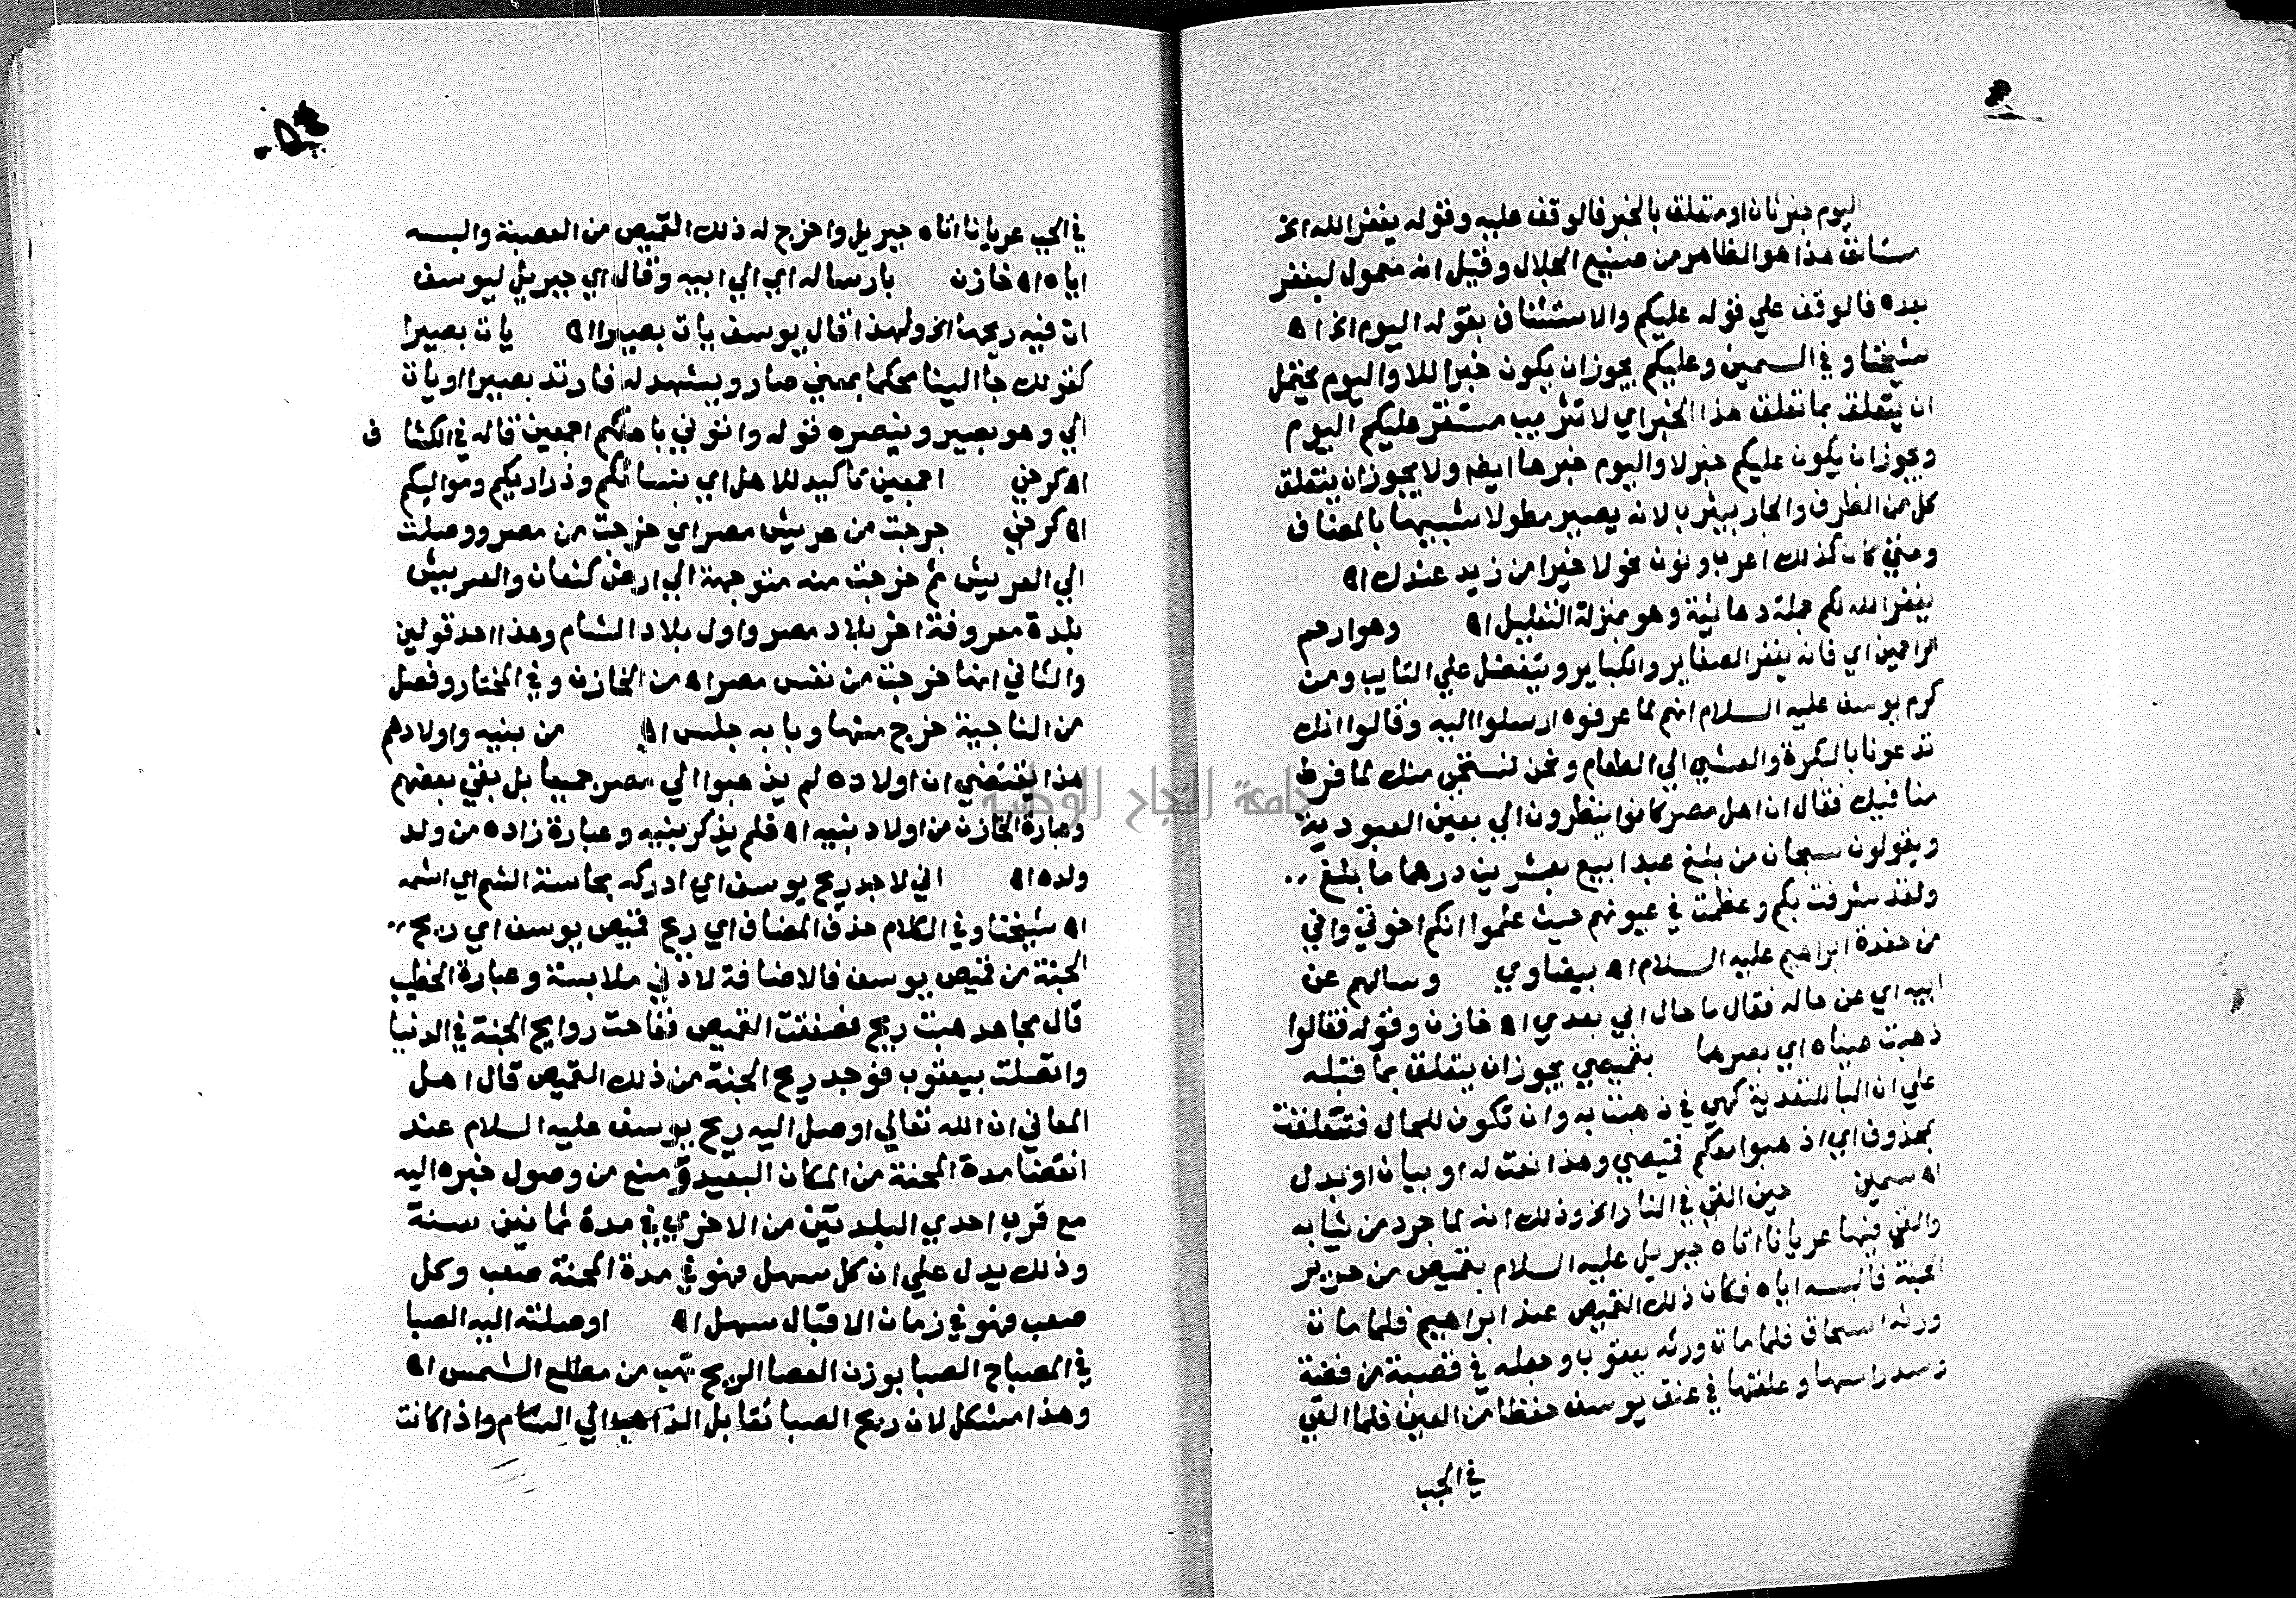 اليوم خبر ثان او متعلق بالخبر فالوقف عليه وقوله يغفر الله الخ
مستانف هذا هو الظاهر من صنيع الجلال وقيل انه معمول ليغفر
بعده فالوقف علي قوله عليكم والاستئناف بقوله اليوم الخ اه
شيخنا وفي السمين وعليكم يجوز ان يكون خبرا للا واليوم يحتمل
ان يتعلق بما تعلق هذا الخبر اي لا تثريب مستقر عليكم اليوم
ويجوز ان يكون عليكم خبر لا واليوم خبرها ايضا ولا يجوز ان يتعلق
كل من الظرف والجار بيثرب لانه يصير مطولا شبيها بالمضاف
ومتي كان كذلك اعرب ونون نحو لا خيرا من زيد عندك اه
يغفر الله لكم جملة دعائية وهو بمنزلة التعليل اه وهو ارحم
الراحمين اي فانه يغفر الصغاير والكباير ويتفضل علي التايب ومن
كرم يوسف عليه السلام انهم لما عرفوه ارسلوا اليه وقالوا انك
تدعونا بالبكرة والعشي الي الطعام ونحن نستحي منك لما فرط
منا فيك فقال ان اهل مصر كانوا ينظرون الي بعين العبودية
ويقولون سبحان من بلغ عبدا بيع بعشرين درهما ما بلغ
ولقد شرفت بكم وعظمت في عيونهم حيث علموا انكم اخوتي واني
من حفدة ابراهيم عليه السلام اه بيضاوي وسالهم عن
ابيه اي عن حاله فقال ما حال ابي بعدي اه خازن وقوله فقالوا
ذهبت عيناه اي بصرهما بقميصي يجوز ان يتعلق بما قبله
علي ان البا للتعدية كهي في ذهبت به وان تكون للحال فتتعلق
بمحذوف اي اذهبوا معكم قميصي وهذا نعت له او بيان او بدل
اه سمين حين القي في النار الخ وذلك انه لما جرد من ثيابه
والقي فيها عريانا اتاه جبريل عليه السلام بقميص من حرير
الجنة فالبسه اياه فكان ذلك القميص عند ابراهيم فلما مات
ورثه اسحاق فلما مات ورثه يعقوب وجعله في قصبة من فضة
وسد راسها وعلقها في عنق يوسف حفظا من العين فلما القي
في الجب
في الجب عريانا اتاه جبريل واخرج له ذلك القميص من القصبة والبسه
اياه اه خازن بارساله اي الي ابيه وقال اي جبريل ليوسف
ان فيه ريحها الخ ولهذا قال يوسف يات بصيرا اه يات بصيرا
كقولك جا البينا محكما بمعني صار ويشهد له فارتد بصيرا او يات
الي وهو بصير وينصره قوله واتوني باهلكم اجمعين قاله في الكشاف
اه كرخي اجمعين تاكيد للاهل اي بنسائكم وذراريكم ومواليكم
اه كرخي خرجت من عريش مصر اي خرجت من مصر ووصلت
الي العريش ثم خرجت منه متوجهة الي ارض كنعان والعريش
بلدة معروفة اخر بلاد مصر واول بلاد الشام وهذا احد قولين
والثاني انها خرجت من نفس مصر اه من الخازن وفي المختار وفصل
من الناحية خرج منها وبابه جلس اه من بنيه واولادهم
هذا يقتضي ان اولاده لم يذهبوا الي مصر جميعا بل بقي بعضهم
وعبارة الخازن من اولاد بنيه اه فلم يذكر بنيه وعبارة زاده من ولد
ولده اه اني لاجد ريح يوسف اي ادركه بحاسة الشم اي اشمه
اه شيخنا وفي الكلام حذف المضاف اي ريح قميص يوسف اي ريح
الجنة من قميص يوسف فالاضافة لادني ملابسة وعبارة الخطيب
قال مجاهد هبت ريح فصفقت القميص ففاحت روايح الجنة في الدنيا
واتصلت بيعقوب فوجد ريح الجنة من ذلك القميص قال اهل
المعاني ان الله تعالي اوصل اليه ريح يوسف عليه السلام عند
انقضا مدة المحنة من المكان البعيد ومنع من وصول خبره اليه
مع قرب احدي البلدتين من الاخري في مدة ثمانين سنة
وذلك يدل علي ان كل سهل فهو في مدة المحنة صعب وكل
صعب فهو في زمان الاقبال سهل اه اوصلته اليه الصبا
في المصباح الصبا بوزن العصا الريح تهب من مطلع الشمس اه
وهذا مشكل لان ريح الصبا تقابل الذاهب الي الشام واذا كانت
جامعة النجاح الوطنية